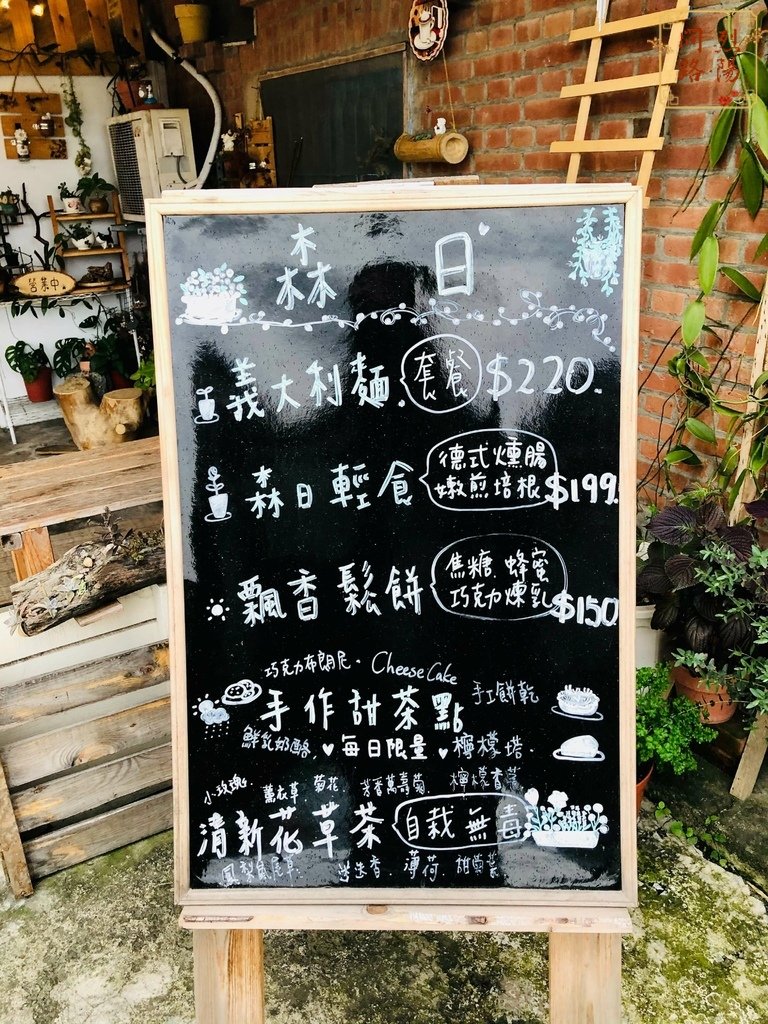 森日
義大利麵 套餐 $220.
森日輕食 德式燻腸 $199.
嫩煎培根
飄香鬆餅 焦糖.蜂蜜 $150
巧克力煉乳
巧克力布朗尼. Cheese Cake
手作甜茶點 手工餅乾
鮮乳奶酪 每日限量 檸檬塔.
小玫瑰 薰衣草 菊花 芳香萬壽菊 檸檬香
清新花草茶 自栽無毒
鳳梨鼠尾草. 迷迭香. 薄荷. 甜菊葉
營業中